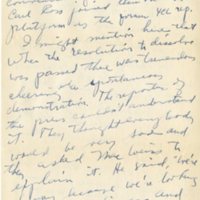 Carl Ross joined them on
platform as the
I might mention here that
when the resolution to dissolve
was passed there was tremendous
cheering, a spontaneous
demonstration. The reporters of
the press cannot understand
it. They thought everybody
would be very sad and
they asked Mac Weiss to
explain it. He said, "we're
because we're looking
and